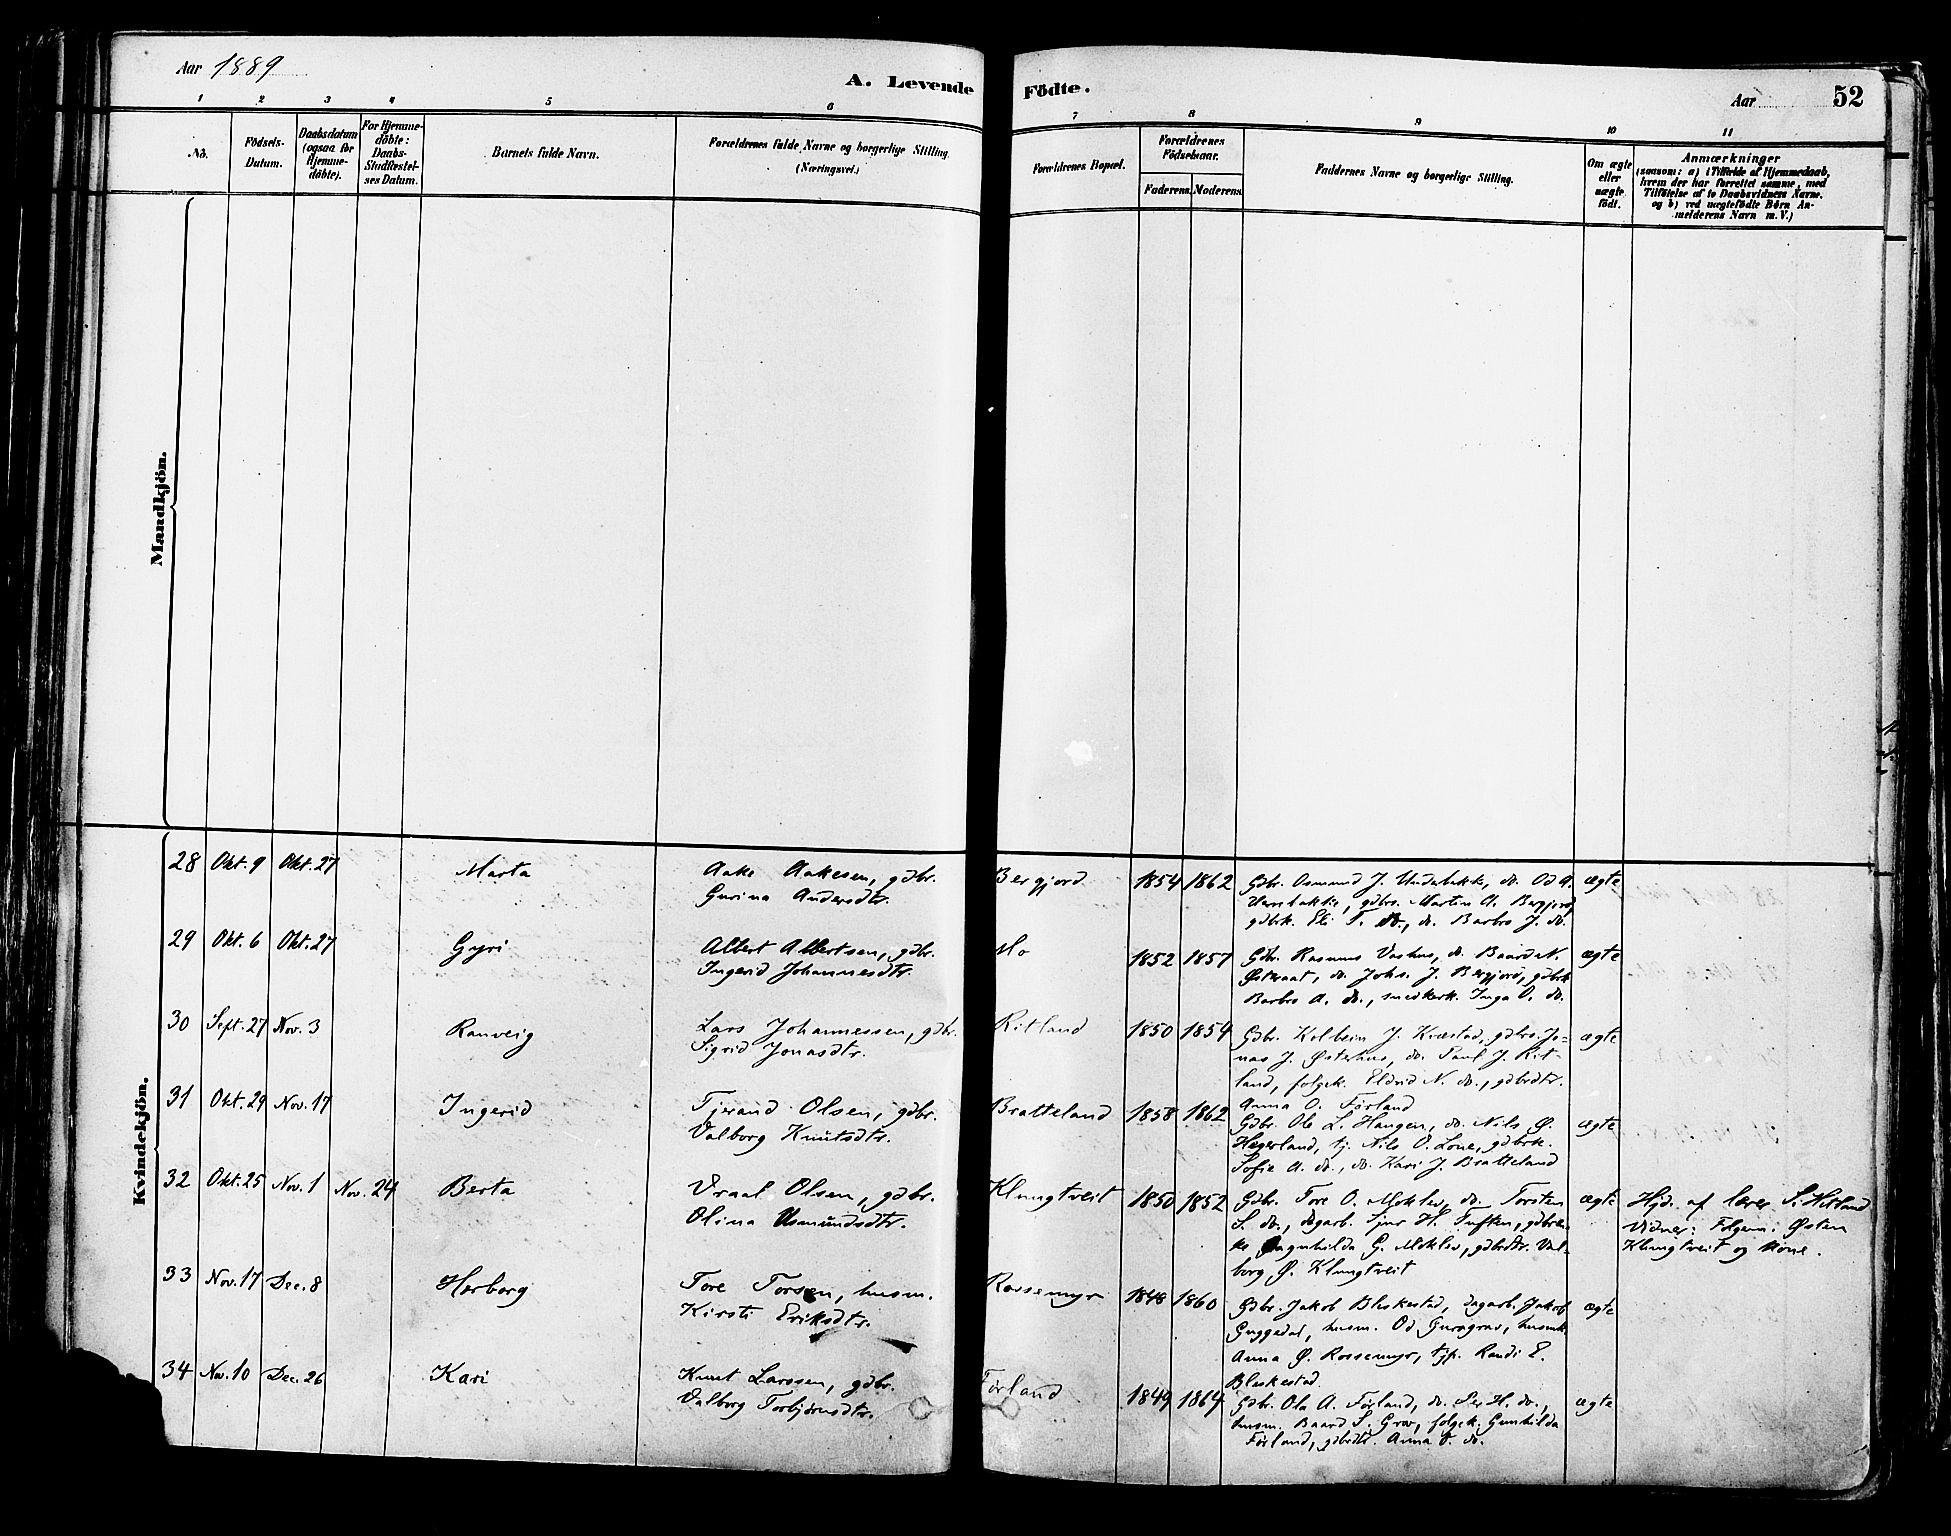 Aar 1889
A. Levende Födte.
Aar
52
1 2 3 4 5 6 7 8 9 10 11
No.
Födsels-
Datum.
Daabsdatum
(ogsaa for
Hjemme-
döbte).
For Hjemme-
döbte:
Daabs-
Stadfæstel-
ses Datum.
Barnets fulde Navn.
Forældrenes fulde Navne og borgerlige Stilling
(Næringsvei.)
Forældrenes Bopæl.
Forældrenes
Födselsaar.
Faderens. Moderens.
Faddernes Navne og borgerlige Stilling.
Om ægte
eller
uægte
födt.
Anmærkninger
(saasom: a) i Tilfælde af Hjemmedaab,
hvem der har forrettet samme, med
Tilföielse af to Daabsvidners Navne.
og b) ved uægtefödte Börn An-
melderens Navn m. V.)
Mandkjön.
Kvindekjön.
28 Okt. 9 Okt. 27 Marta
Aake Aakesen, gdbr.
Gurina Andersdtr.
Bergjord 1854 1862
Gdbr. Osmund J. Underbakke, do. Od A.
gdbrs. Martin A. Bergjord
gdbrk. Eli T. do., do. Barbro J. do.
ægte
29 Okt. 6 Okt. 27 Gyri
Albert Albertsen, gdbr.
Ingerid Johannesdtr.
Mo 1852 1857
Gdbr. Rasmus Vashus, do. Baard N.
Østeraat, do. Johs. J. Bergjord, gdbrk
Barbro A. do., smedkerk. Inga O. do.
ægte
30 Sept. 27 Nov. 3 Ranveig
Lars Johannessen, gdbr.
Sigrid Jonasdtr.
Ritland 1850 1854
Gdbr. Kolbein J. Kvæstad, gdbrs. Jo-
nas J. Østerhus, do. Paul J. Rit-
land, folgek. Eldrid N. do., gdbrdtr.
Anna O. Førland
ægte
31 Okt. 29 Nov. 17 Ingerid
Tjerand Olsen, gdbr.
Valborg Knutsdtr.
Bratteland 1858 1862
Gdbr. Ole L. Haugen, do. Nils Ø.
Hægerland, tj. Nils O. Lone, gdbrk.
Sofie A. do., do. Kari J. Bratteland
ægte
32 Okt. 25 Nov. 1 Nov. 24 Berta
Vraal Olsen, gdbr.
Olina Osmundsdtr.
Klungtveit 1850 1852
Gdbr. Tore O. Moklev, do. Torsten
S. do., dagarb. Sjur H. Tuften, gdbren-
ke Gagnhilda G. Moklev, gdbrdtr. Val-
borg Ø. Klungtveit
ægte
Hjd. af lærer S. Ritland
Vidner: Folgem. Østen
Klungtveit og kone.
33 Nov. 17 Dec. 8 Herborg
Tore Torsen, husm.
Kirsti Eriksdtr.
Rossemyr 1848 1860
Gdbr. Jakob Bleskestad, dagarb. Jakob
Guggedal, husm. Od husmk.
Anna Ø. Rossemyr, tjp. Randi E.
Bleskestad
ægte
34 Nov. 10 Dec. 26 Kari
Knut Larssen, gdbr.
Valborg Torbjørnsdtr.
Førland 1849 1864
Gdbr. Ola A. Førland, do. Per H. do.,
husm. Baard S. Grov, folgek. Gunhilda
Førland, gdbrdtr. Anna O. do.
ægte